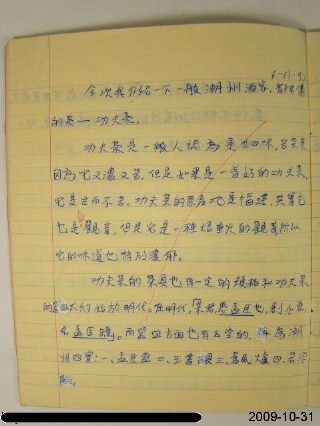 6-11-92
今次我介紹一下一般潮州酒家，
的茶——功夫茶。
功夫茶是一般人認為是
因為它又濃又苦，但是如果是一壺好的功夫茶，
它是甘而不苦。功夫茶的原產地是福建，其實它
也是觀音，但是它是一種焙重火的觀音所以
它的味道也特別濃郁。
功夫茶的茶具也有一定的規格和功夫茶
的壺大約始於明代。在明代，孟臣也，創小壺，
名孟臣壺。而茗四方面也有盛的，稱為潮
州四寶：一、孟臣壺 二、玉書 三、風爐 四、若深
甌。
2009-10-31